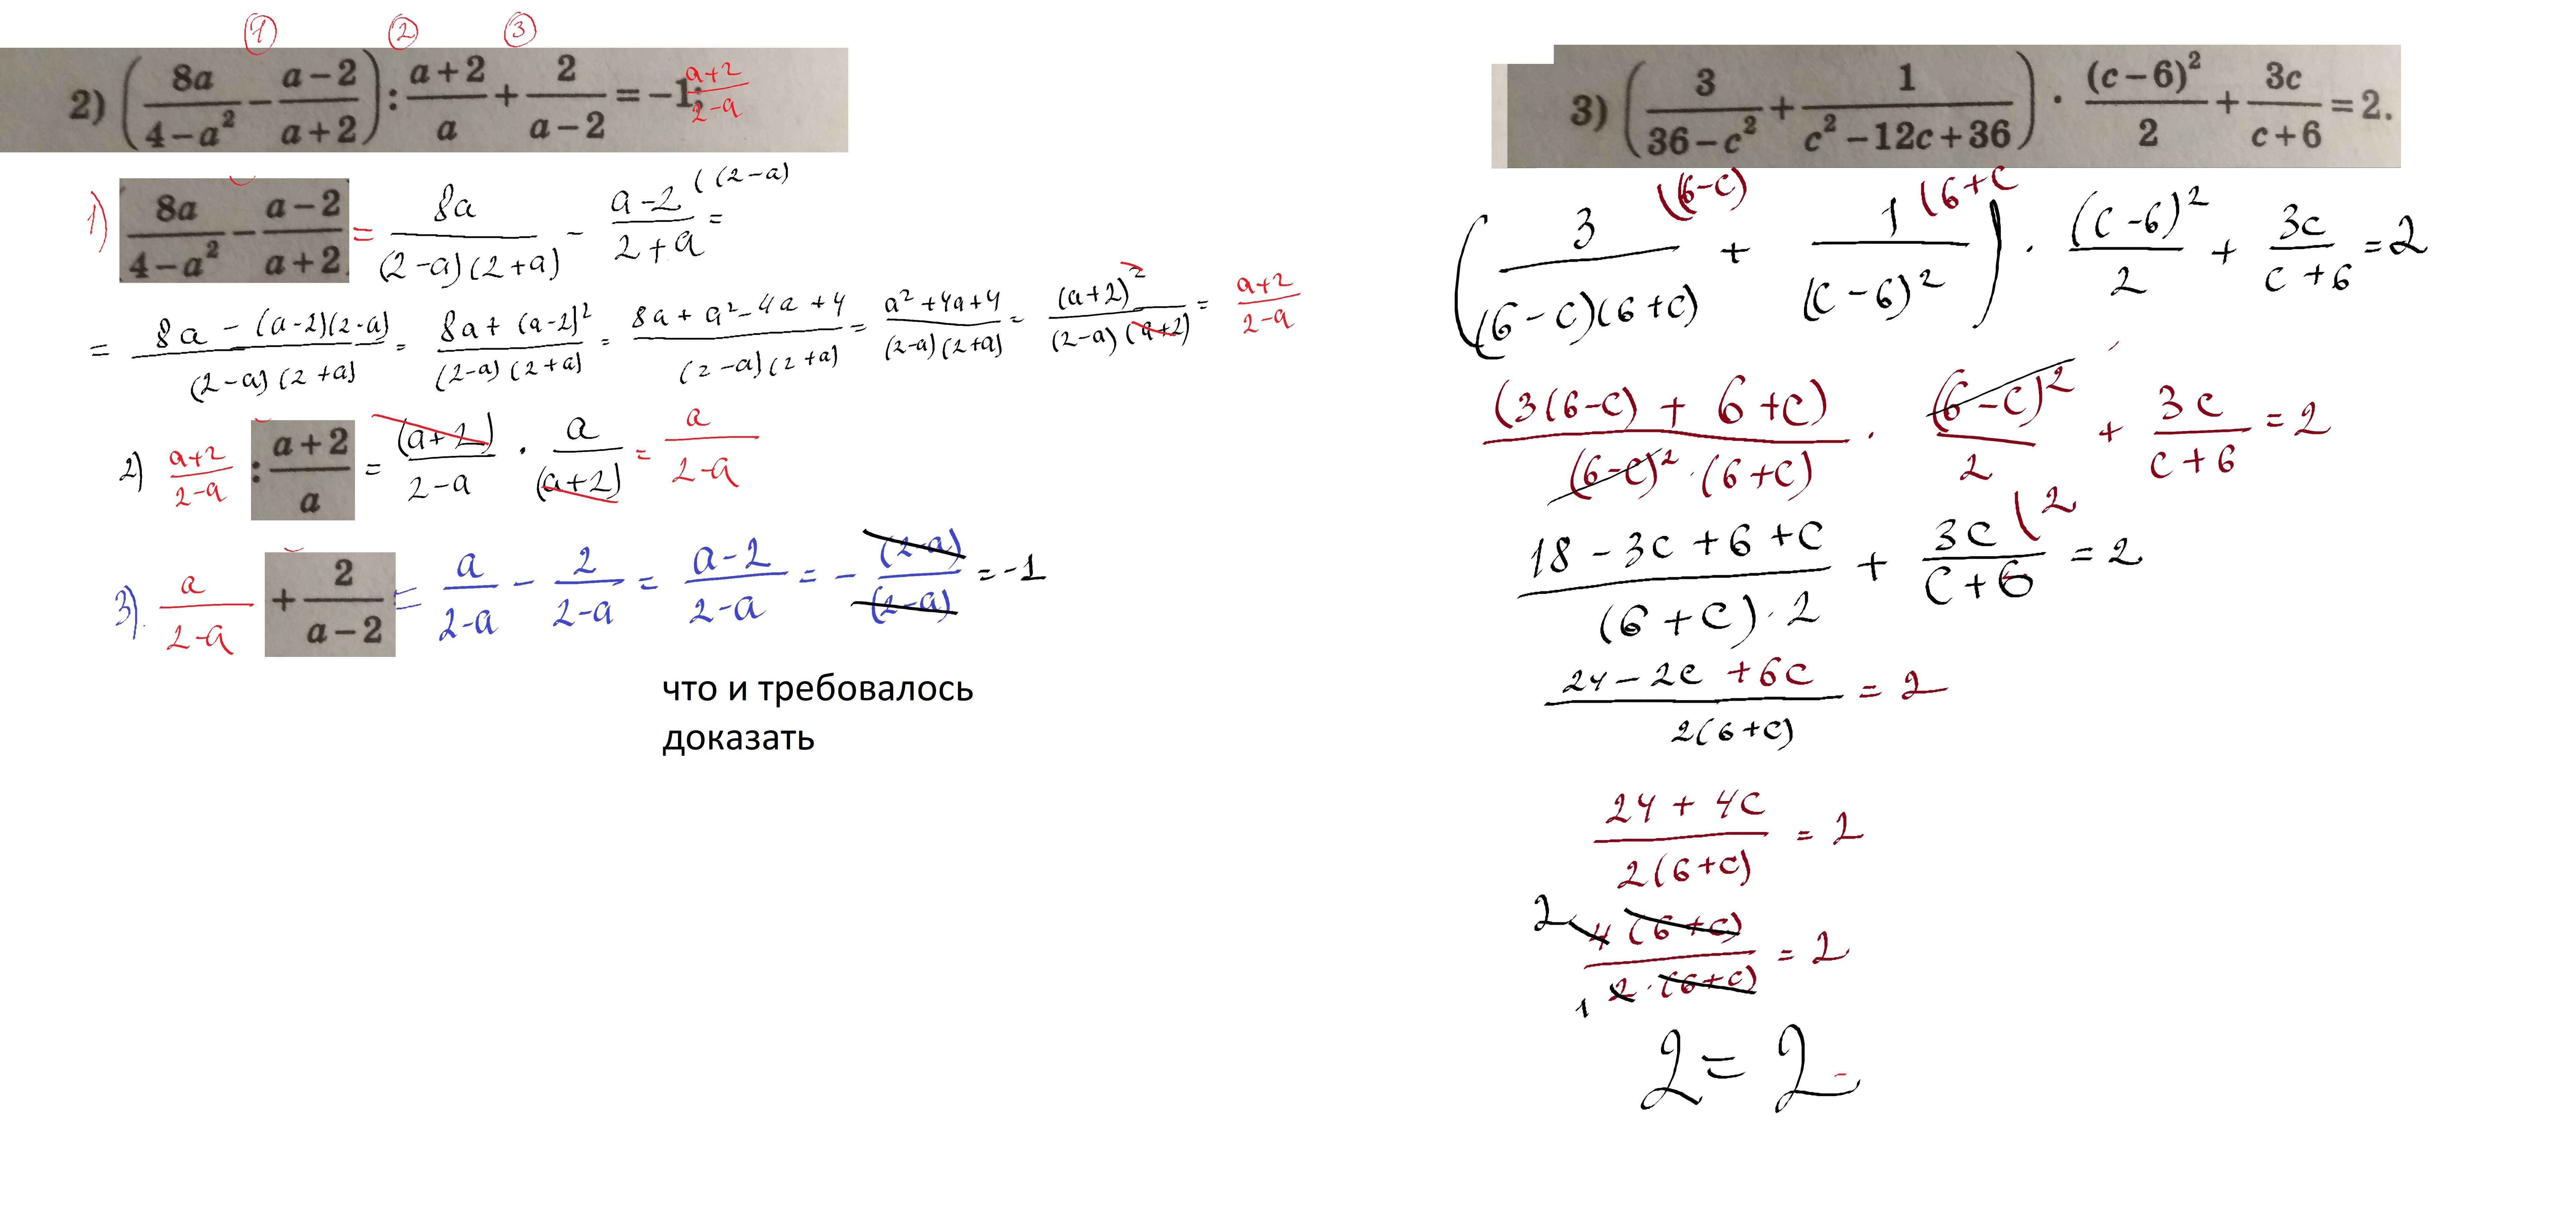 ① ② ③
2) (8a/(4−a²) − (a−2)/(a+2)) : (a+2)/a + 2/(a−2) = −1; (a+2)/(2-a)
1) 8a/(4−a²) − (a−2)/(a+2) = 8a/((2-a)(2+a)) - (a-2)/(2+a) ((2-a) =
= (8a - (a-2)(2-a))/((2-a)(2+a)) = (8a + (a-2)²)/((2-a)(2+a)) = (8a + a² - 4a + 4)/((2-a)(2+a)) = (a² + 4a + 4)/((2-a)(2+a)) = (a+2)²/((2-a)(a+2)) = (a+2)/(2-a)
2) (a+2)/(2-a) : (a+2)/a = (a+2)/(2-a) · a/(a+2) = a/(2-a)
3). a/(2-a) + 2/(a−2) = a/(2-a) - 2/(2-a) = (a-2)/(2-a) = - (2-a)/(2-a) = -1
что и требовалось
доказать
3) (3/(36−c²) + 1/(c²−12c+36)) · (c−6)²/2 + 3c/(c+6) = 2.
(3/((6-c)(6+c)) (6-c) + 1/(c-6)² (6+c) · (c-6)²/2 + 3c/(c+6) = 2
(3(6-c) + 6+c)/((6-c)² · (6+c)) · (6-c)²/2 + 3c/(c+6) = 2
(18 - 3c + 6 + c)/((6+c)·2) + 3c/(c+6) (2 = 2
(24 - 2c + 6c)/(2(6+c)) = 2
(24 + 4c)/(2(6+c)) = 2
2 4(6+c)/(1 2·(6+c)) = 2
2 = 2